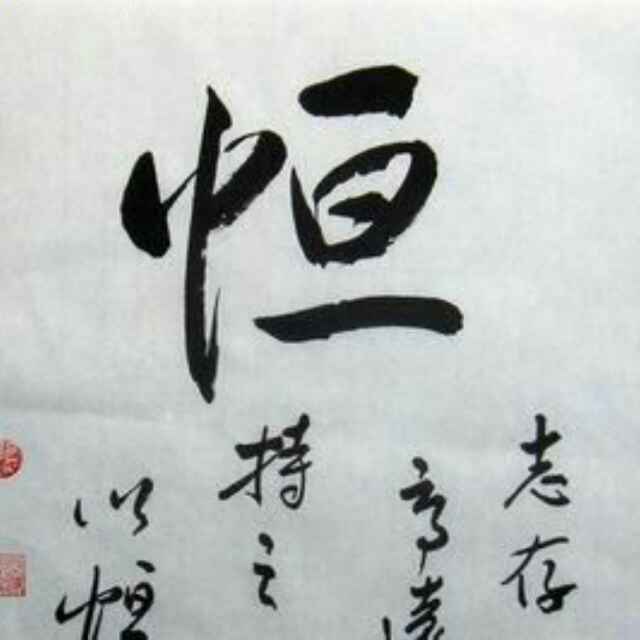 恒
志存
高遠
持之
以恒